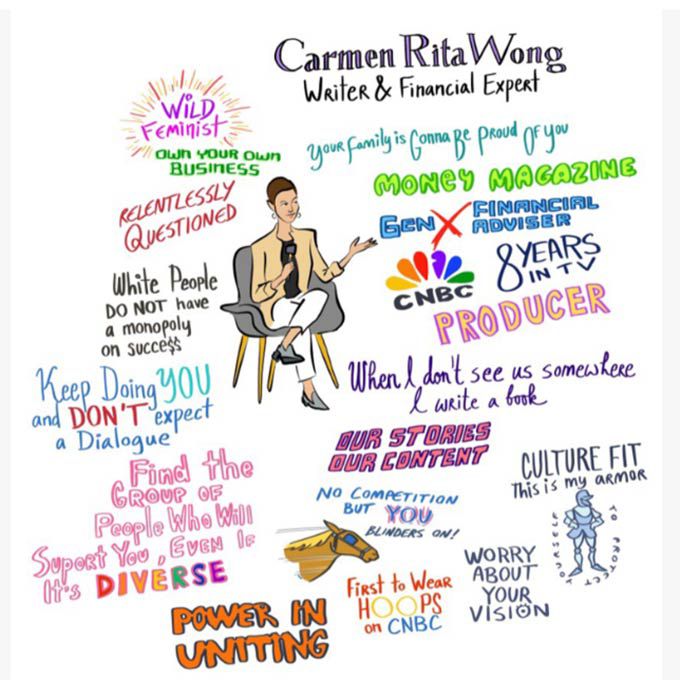 Carmen Rita Wong
Writer & Financial Expert
WiLD
FEMiNiST
OWN YOUR OWN
BUSINESS
Your family is Gonna Be Proud OF you
MONEY MAGAZINE
RELENTLESSLY
QUESTIONED
GEN X FINANCIAL
ADVISER
CNBC
8 YEARS
IN TV
PRODUCER
White People
DO NOT have
a monopoly
on succe$$
When I don't see us somewhere
I write a book
Keep Doing YOU
and DON'T expect
a Dialogue
OUR STORIES
OUR CONTENT
Find the
GROUP OF
People Who Will
Suport You, EVEN IF
It's DIVERSE
NO COMPETITION
BUT YOU
BLINDERS ON!
CULTURE FIT
This is my ARMOR
TO PROTECT
YOURSELF
POWER IN
UNITING
FIRST to WEAR
HOOPS
on CNBC
WORRY
ABOUT
YOUR
VISION